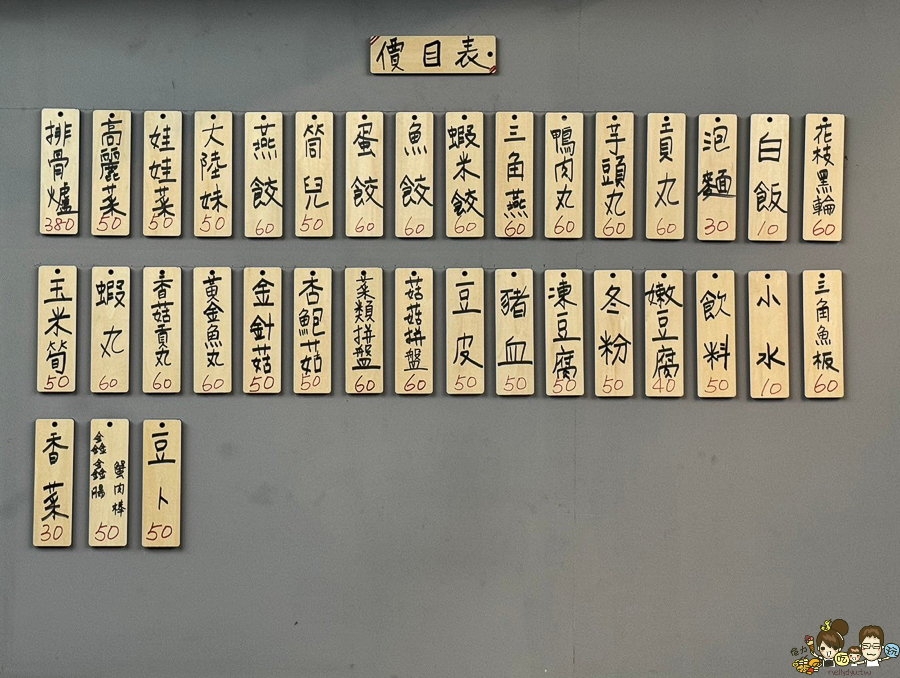 價目表
排骨爐 380
高麗菜 50
娃娃菜 50
大陸妹 50
燕餃 60
筒兒 50
蛋餃 60
魚餃 60
蝦米餃 60
三角燕 60
鴨肉丸 60
芋頭丸 60
貢丸 60
泡麵 30
白飯 10
花枝黑輪 60
玉米筍 50
蝦丸 60
香菇貢丸 60
黃金魚丸 60
金針菇 50
杏鮑菇 50
菜類拼盤 60
菇菇拼盤 60
豆皮 50
豬血 50
凍豆腐 50
冬粉 50
嫩豆腐 40
飲料 50
小水 10
三角魚板 60
香菜 30
蟹肉棒
鑫鑫腸
50
豆卜 50